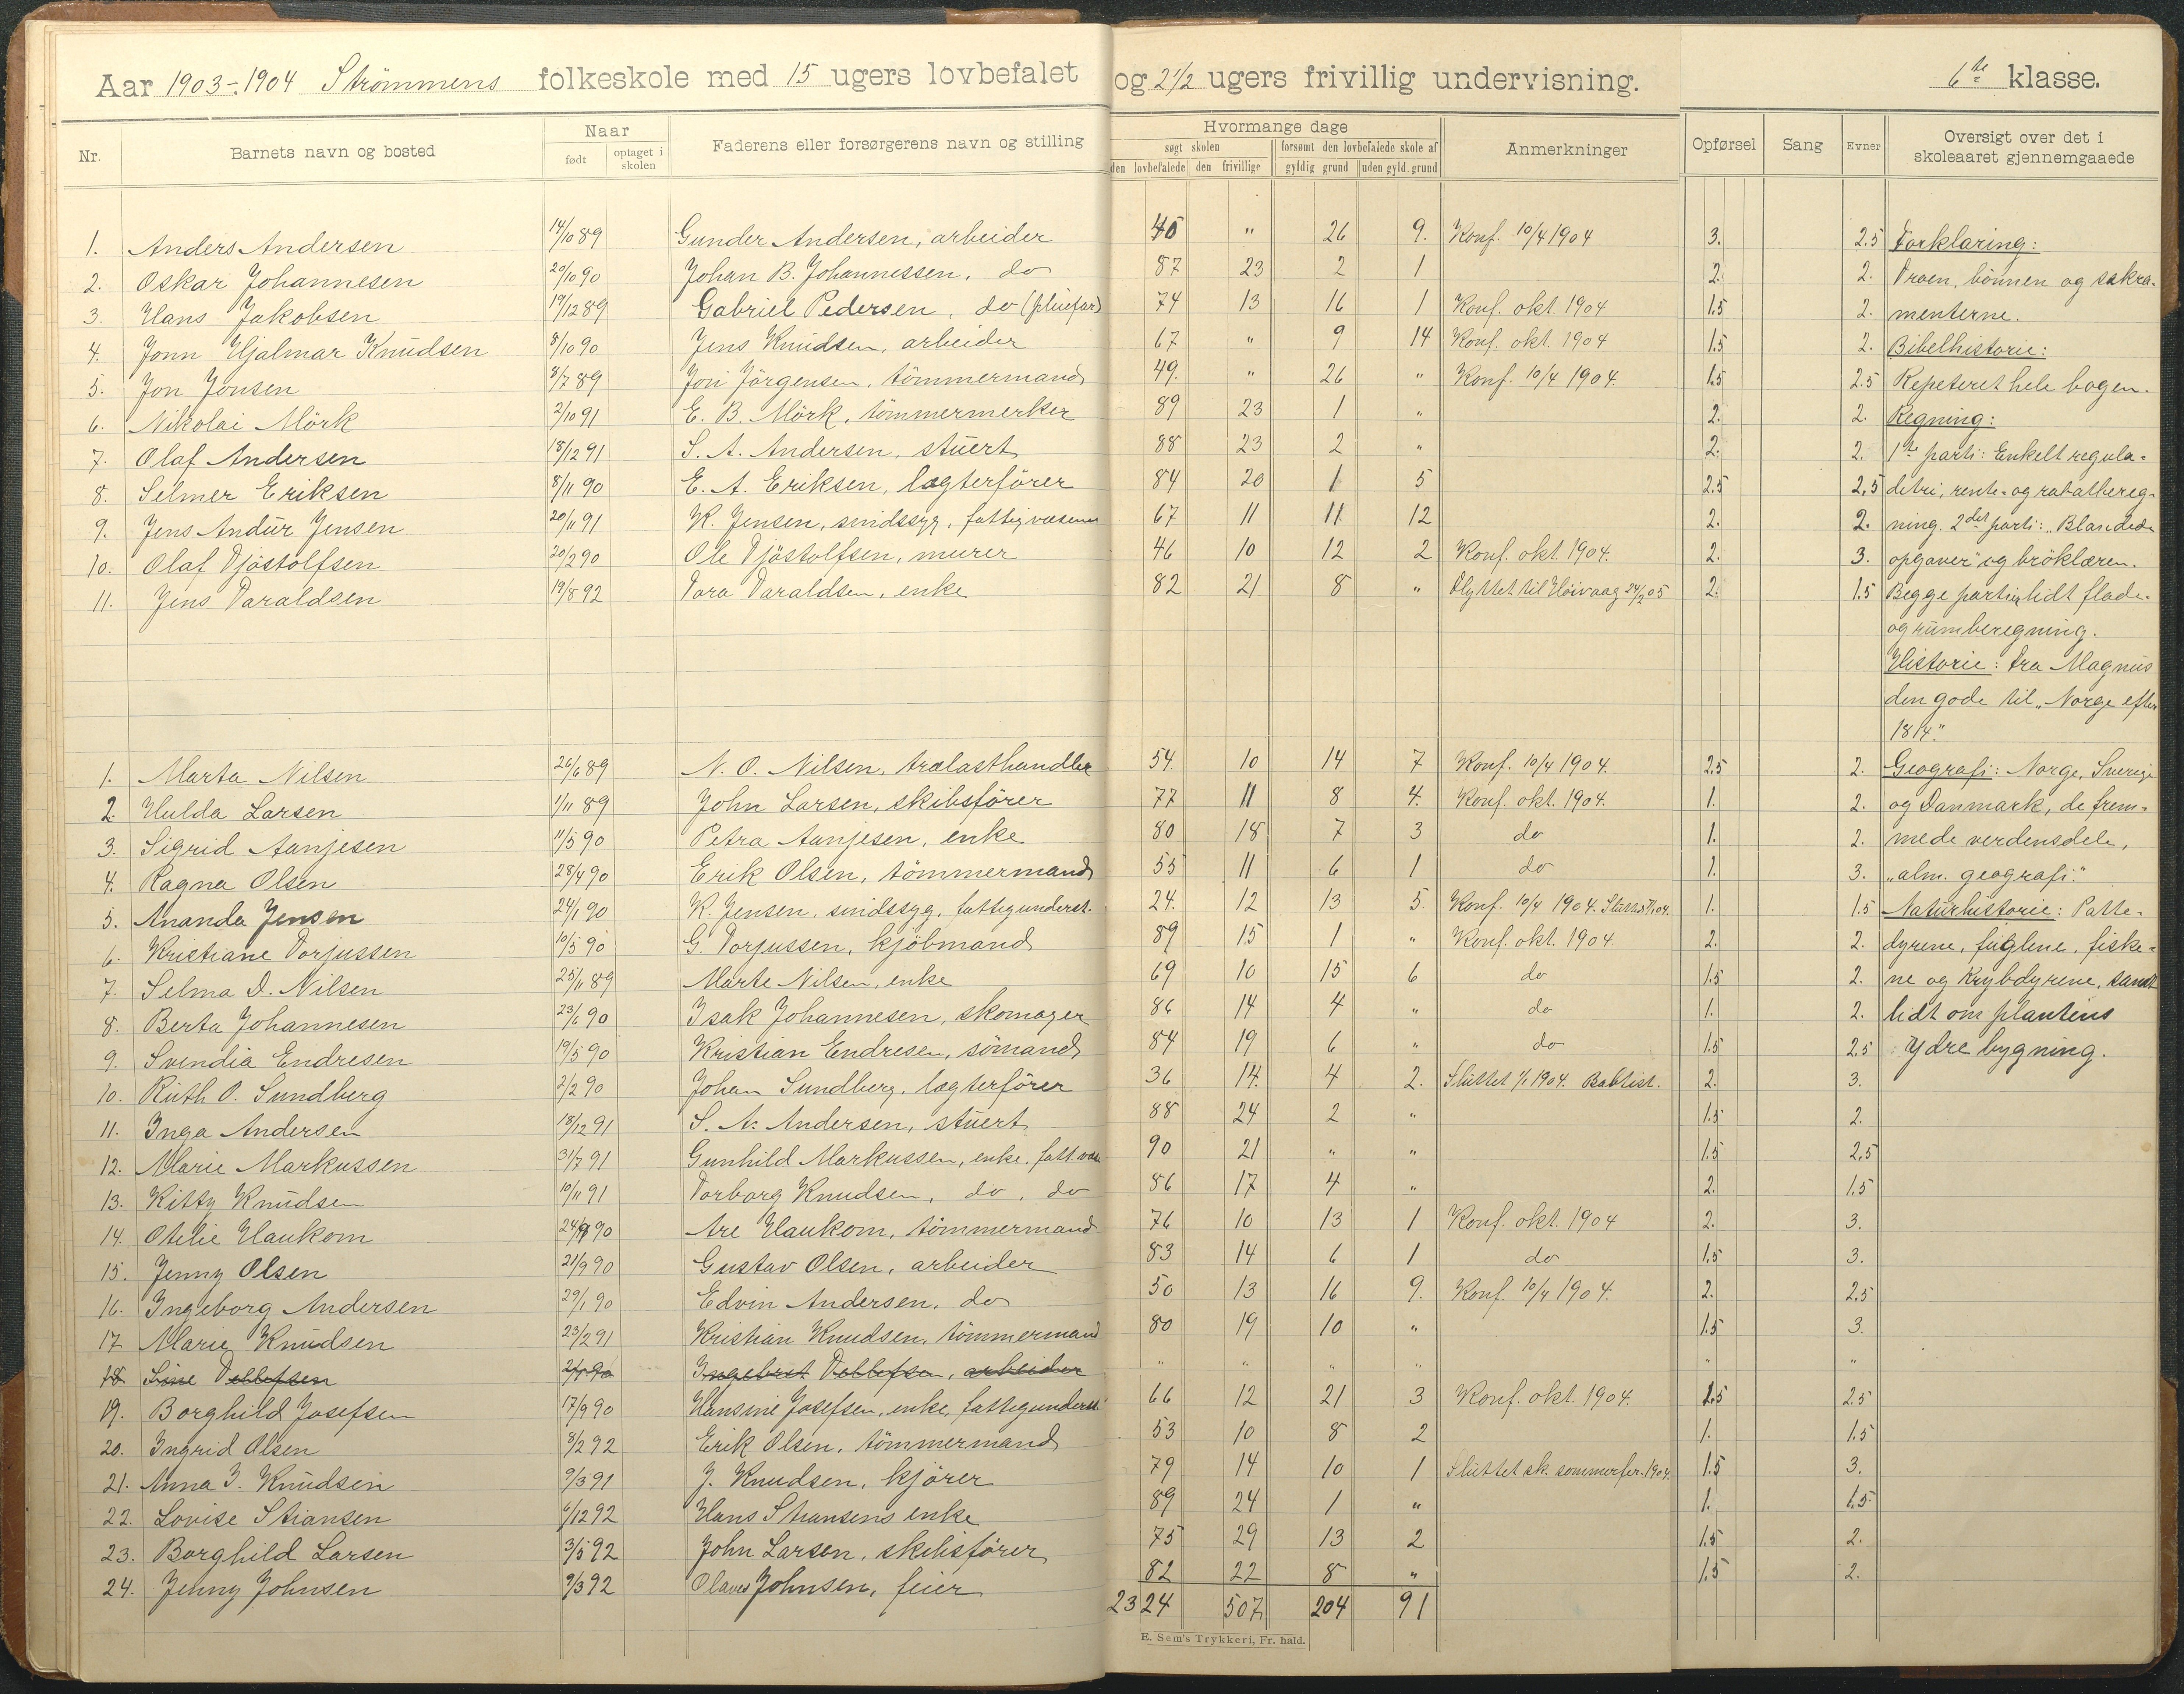 Aar 1903-1904 Strömmens folkeskole med 15 ugers lovbefalet og 2 1/2 ugers frivillig undervisning. 6te klasse.
Nr. Barnets navn og bosted Naar født optaget i skolen Faderens eller forsørgerens navn og stilling Hvormange dage søgt skolen den lovbefalede den frivillige forsømt den lovbefalede skole af gyldig grund uden gyld. grund Anmerkninger Opførsel Sang Evner Oversigt over det i skoleaaret gjennemgaaede
1. Anders Andersen 14/10 89 Gunder Andersen, arbeider 40 " 26 9. Konf. 10/4 1904 3. 2.5 Forklaring:
2. Oskar Johannesen 20/10 90 Johan B. Johannessen, do 87 23 2 1 2. 2. Troen, bönnen og sakra-
3. Hans Jakobsen 19/12 89 Gabriel Pedersen, do (pleiefar) 74 13 16 1 Konf. okt. 1904 1.5 2. menterne.
4. Jonn Hjalmar Knudsen 8/10 90 Jens Knudsen, arbeider 67 " 9 14 Konf. okt. 1904 1.5 2. Bibelhistorie:
5. Jon Jonsen 8/7 89 Jon Jörgensen, tömmermand 49. " 26 " Konf. 10/4 1904. 1.5 2.5 Repeteret hele bogen.
6. Nikolai Mörk 2/10 91 E. B. Mörk, tömmermerker 89 23 1 " 2. 2. Regning:
7. Olaf Andersen 18/12 91 S. A. Andersen, stuert 88 23 2 " 2. 2. 1ste parti: Enkelt regula-
8. Selmer Eriksen 8/11 90 E. A. Eriksen, lægterförer 84 20 1 5 2.5 2,5 detri, rente- og rabatbereg-
9. Jens Andur Jensen 20/11 91 K. Jensen, sindssyg, fattigvæsenet 67 11 11 12 2. 2. ning. 2det parti: "Blandede
10. Olaf Tjöstolfsen 20/2 90 Ole Tjöstolfsen, murer 46 10 12 2 Konf. okt. 1904. 2. 3. opgaver" og bröklæren.
11. Jens Taraldsen 19/8 92 Tora Taraldsen, enke 82 21 8 " Flyttet til Höivaag 24/2 05 2. 1.5 Begge partier lidt flade-
og rumberegning.
Historie: Fra Magnus
den gode til "Norge efter
1814."
1. Marta Nilsen 26/6 89 N. O. Nilsen, trælasthandler 54. 10 14 7 Konf. 10/4 1904. 2.5 2. Geografi: Norge, Sverige
2. Hulda Larsen 1/11 89 John Larsen, skibsförer 77 11 8 4. Konf. okt. 1904. 1. 2. og Danmark, de frem-
3. Sigrid Aanjesen 11/5 90 Petra Aanjesen, enke 80 18 7 3 do 1. 2. mede verdensdele,
4. Ragna Olsen 28/4 90 Erik Olsen, tömmermand 55 11 6 1 do 1. 3. "alm. geografi."
5. Ananda Jensen 24/1 90 K. Jensen, sindssyg, fattigunderst. 24. 12 13 5. Konf. 10/4 1904. 1. 1.5 Naturhistorie: Patte-
6. Kristiane Torjussen 10/5 90 G. Torjussen, kjöbmand 89 15 1 " Konf. okt. 1904 2. 2. dyrene, fuglene, fiske-
7. Selma D. Nilsen 25/11 89 Marte Nilsen, enke 69 10 15 6 do 1.5 2. ne og Krybdyrene, samt
8. Berta Johannesen 23/6 90 Isak Johannesen, skomager 86 14 4 " do 1. 2. lidt om plantens
9. Svendia Endresen 19/5 90 Kristian Endresen, sömand 84 19 6 " do 1.5 2.5 ydre bygning.
10. Ruth O. Sundberg 2/2 90 Johan Sundberg, lægterförer 36 14. 4 2. Sluttet 1/1 1904. Babtist. 2. 3.
11. Inga Andersen 18/12 91 S. A. Andersen, stuert 88 24 2 " 1.5 2.
12. Marie Markussen 31/7 91 Gunhild Markussen, enke, fatt.væs. 90 21 " " 1.5 2,5
13. Kitty Knudsen 10/11 91 Torborg Knudsen, do, do 86 17 4 " 2. 1.5
14. Otilie Haukom 90 Are Haukom, tömmermand 76 10 13 1 Konf. okt. 1904 2. 3.
15. Jenny Olsen 21/9 90 Gustav Olsen, arbeider 83 14 6 1 do 1.5 3.
16. Ingeborg Andersen 29/1 90 Edvin Andersen, do 50 13 16 9. Konf. 10/4 1904. 2. 2.5
17 Marie Knudsen 23/2 91 Kristian Knudsen, tömmermand 80 19 10 " 1.5 3.
18 Sine Dellefsen Ingebret Dellefsen, arbeider " " " " " "
19. Borghild Josefsen 17/9 90 Hansine Josefsen, enke, fattigunderst. 66 12 21 3 Konf. okt. 1904. 2.5 2.5
20. Ingrid Olsen 8/2 92 Erik Olsen, tömmermand 53 10 8 2 1. 1.5
21. Anna I. Knudsen 9/3 91 J. Knudsen, kjörer 79 14 10 1 Sluttet sk. sommerfer. 1904. 1.5 3.
22. Lovise Stiansen 6/12 92 Hans Stiansens enke 89 24 1 " 1. 1.5
23. Borghild Larsen 3/5 92 John Larsen, skibsförer 75 29 13 2 1.5 2.
24. Jenny Johnsen 9/3 92 Olaves Johnsen, feier 82 22 8 " 1.5 2.
2324 507 204 91
E. Sem's Trykkeri, Fr. hald.